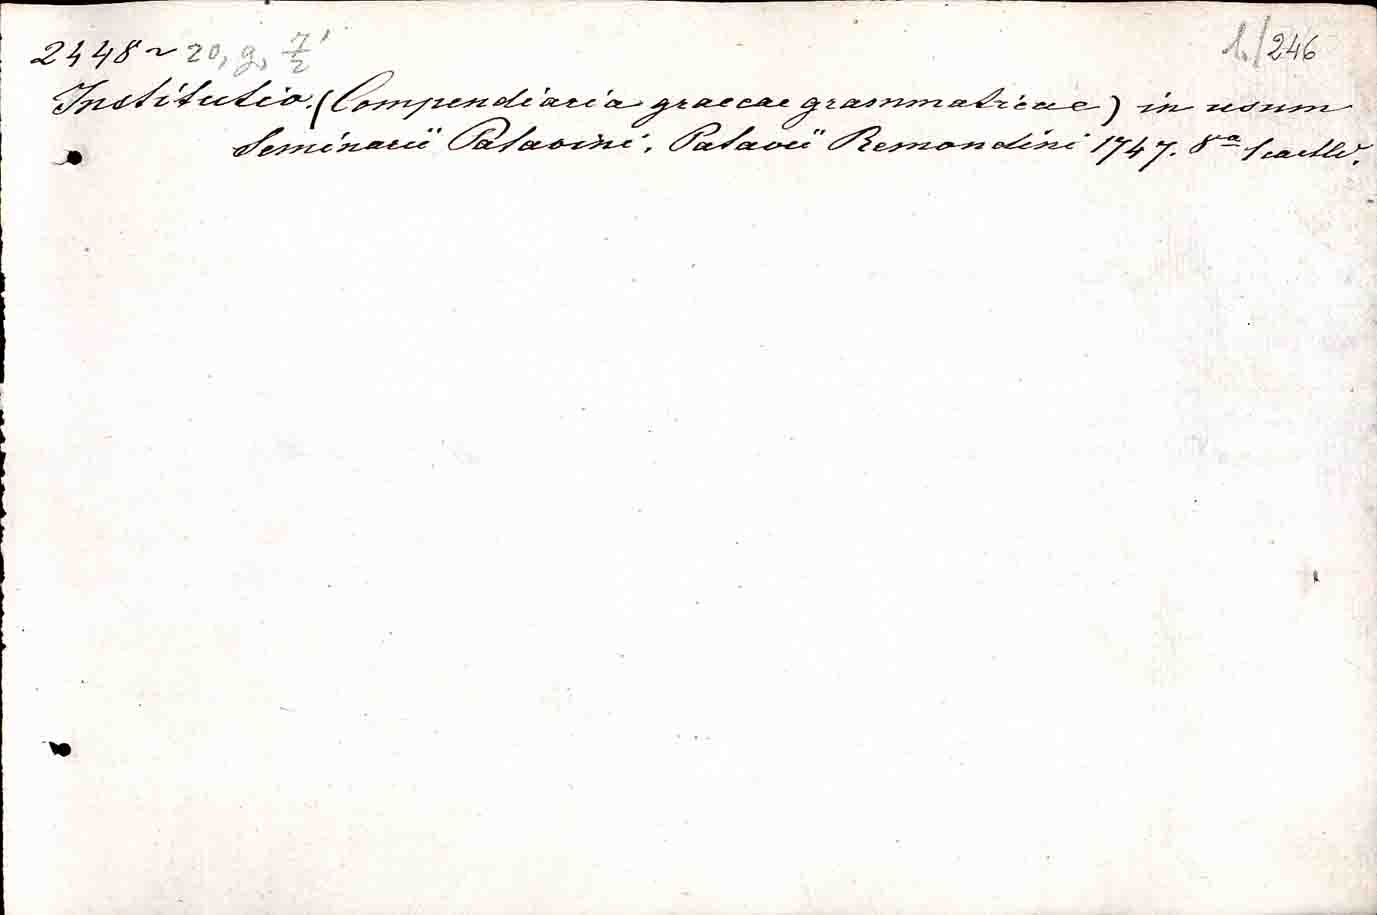 2448~ 20, g, 7/2' 1./246
Institutio. (Compendiaria graecae grammaticae) in usum
Seminarii Patavini. Patavii Remondini 1747. 8ª